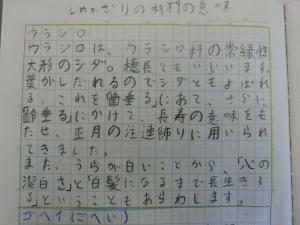 しめかざりの材料の意味
ウラジロ
ウラジロは、ウラジロ科の常緑性
大形のシダ。穂長ともいいます。
葉がしだれるのでシダともよばれ
る。これを「歯垂る」にあて、さらに
「齢垂る」にかけて、長寿の意味をも
たせ、正月の注連飾りに用いられ
てきました。
また、うらが白いことから、「心の
潔白さ」と「白髪になるまで長生きす
る」ということもあらわします。
ゴヘイ(ごへい)